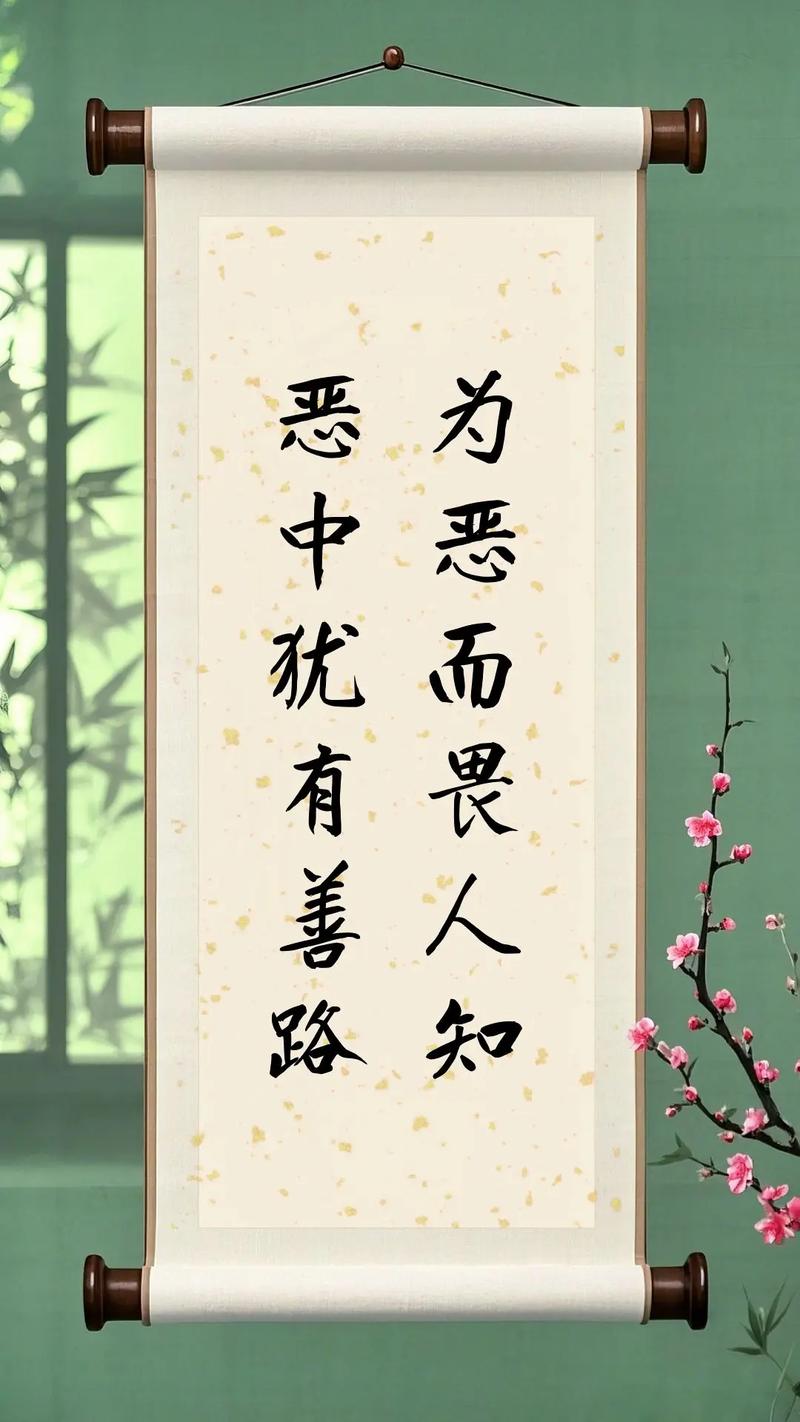 为恶而畏人知
恶中犹有善路